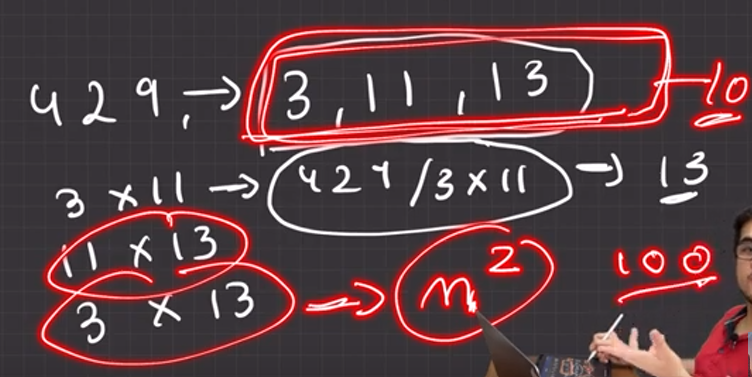 429, → 3, 11, 13 — 10
3 × 11 → 429 / 3 × 11 → 13
11 × 13
3 × 13 → n² 100